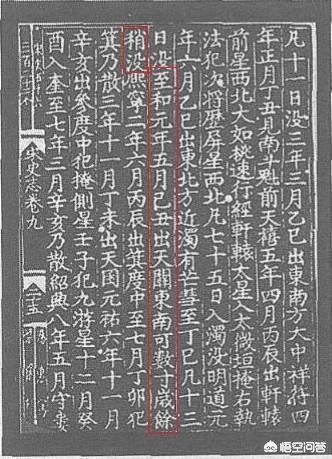 凡十一日沒三年三月乙巳出東南方大中祥符四
年正月丁丑見南斗魁前天禧五年四月丙辰出軒轅
前星西北大如桃速行經軒轅大星入太微垣掩右執
法犯次將歷屏星西北凡七十五日入濁沒明道元
年六月乙巳出東北方近濁有芒彗至丁巳凡十三
日沒至和元年五月己丑出天關東南可數寸歲餘
稍沒熙寧二年六月丙辰出箕度中至七月丁卯犯
箕乃散三年十一月丁未出天囷元祐六年十一月
辛亥出參度中犯掩側星壬子犯九游星十二月癸
酉入奎至七年三月辛亥乃散紹興八年五月守婁
宋史志卷九
二十五
悟空问答